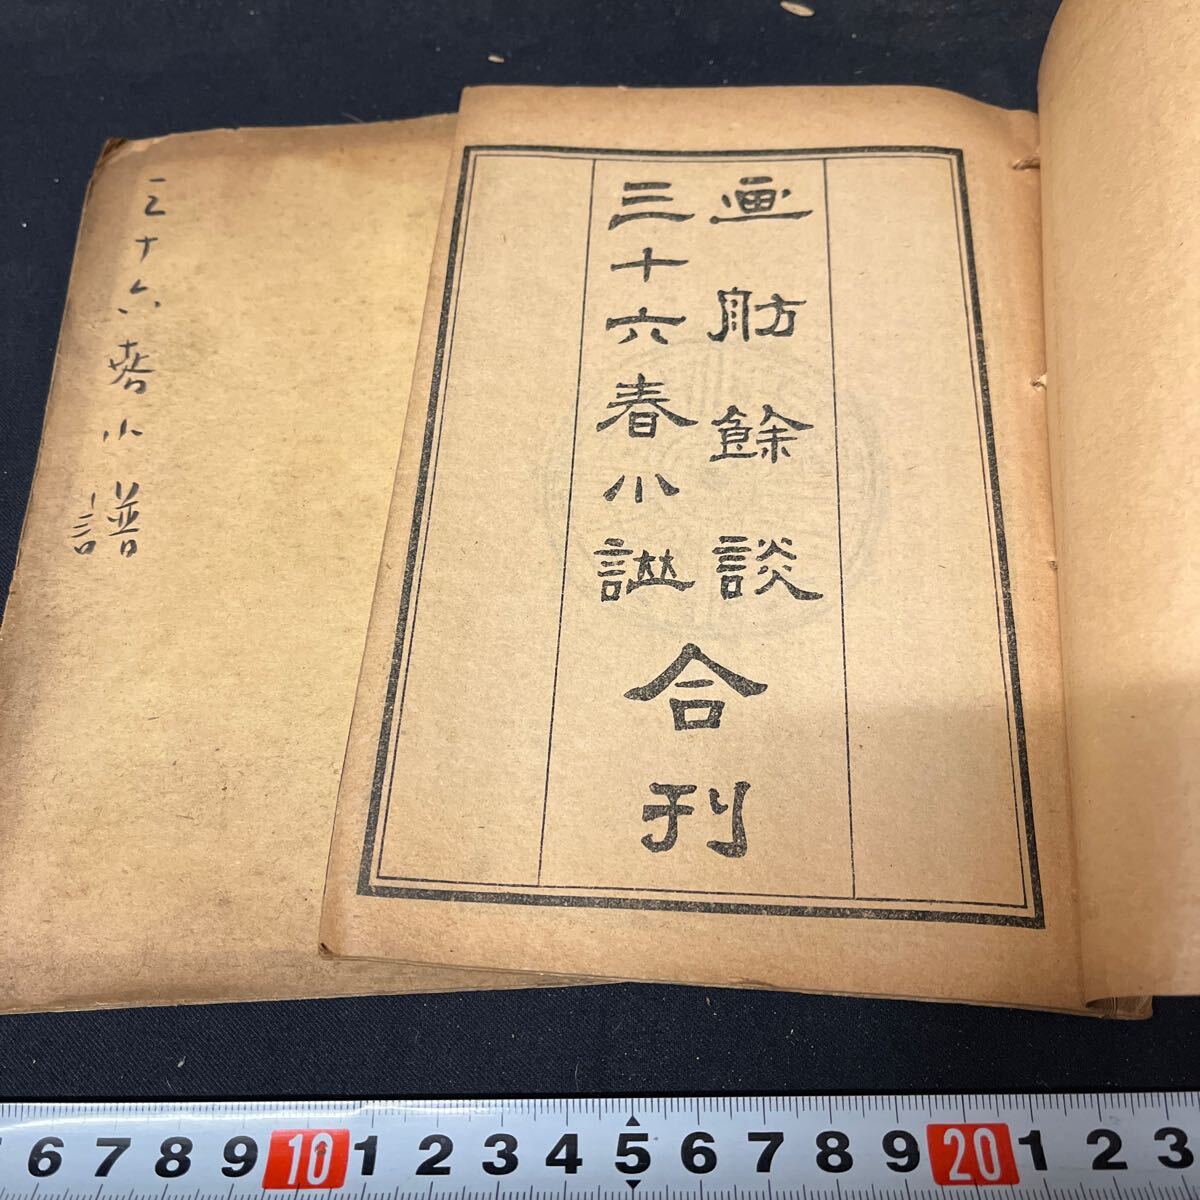 画舫餘談
三十六春小譜
合刊
三十六春小譜
6 7 8 9 10 1 2 3 4 5 6 7 8 9 20 1 2 3